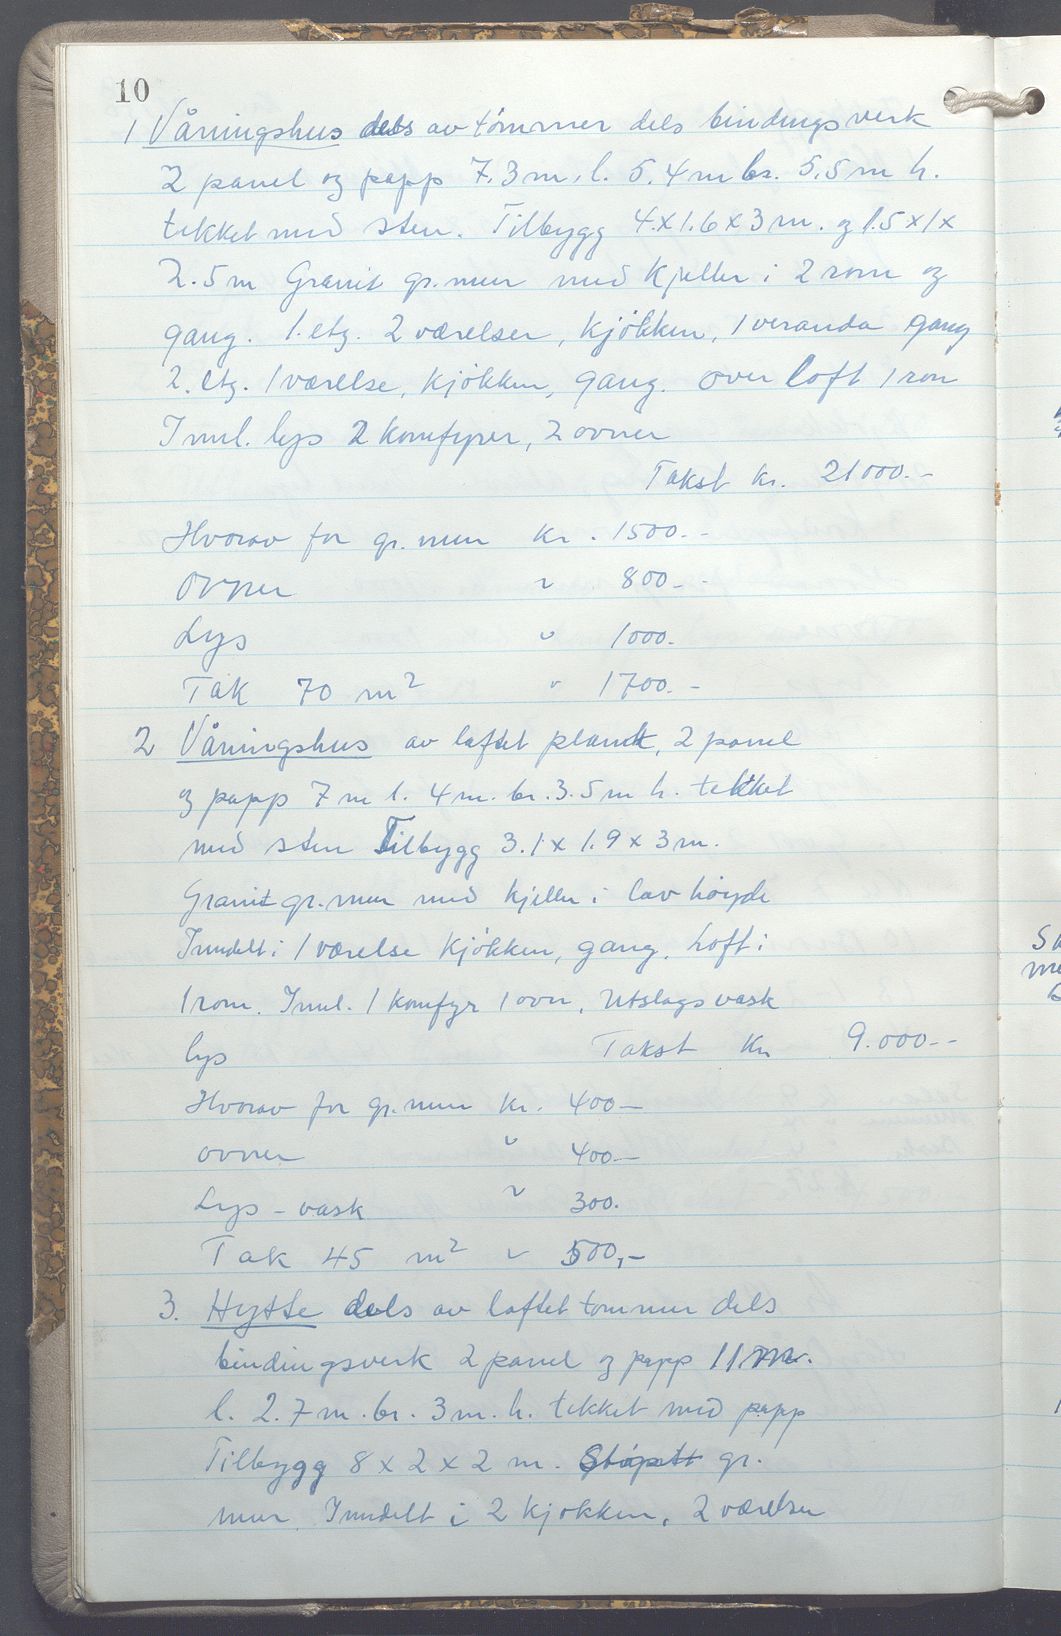 10
1 Våningshus dels av tømmer dels bindingsverk
2 panel og papp 7.3 m. l. 5.4 m br. 5.5 m h.
tekket med sten. Tilbygg 4.x1.6x3 m. og 1.5x1x
2.5 m Granit gr.mur med kjeller i 2 rom og
gang. 1. etg. 2 værelser, kjøkken, 1 veranda gang
2. etg. 1 værelse, kjøkken, gang. over loft 1 rom
Innl. lys 2 komfyrer, 2 ovner
Takst kr. 21000.-
Hvorav for gr.mur kr. 1500.-
ovner " 800.-
Lys " 1000.
Tak 70 m² " 1700.-
2 Våningshus av laftet plank, 2 panel
og papp 7 m l. 4 m. br. 3.5 m h. tekket
med sten Tilbygg 3.1 x 1.9 x 3 m.
Granit gr.mur med kjeller i lav høyde
Inndelt i 1 værelse kjøkken, gang. Loft i
1 rom. Innl. 1 komfyr 1 ovn, utslagsvask
lys Takst Kr 9.000.-
Hvorav for gr.mur kr. 400-
ovner " 400-
Lys - vask " 300.
Tak 45 m² " 500,-
3. Hytte dels av laftet tømmer dels
bindingsverk 2 panel og papp 11 m.
l. 2.7 m. br. 3 m. h. tekket med papp
Tilbygg 8 x 2 x 2 m. Støpett gr.
mur Inndelt i 2 kjøkken, 2 værelser